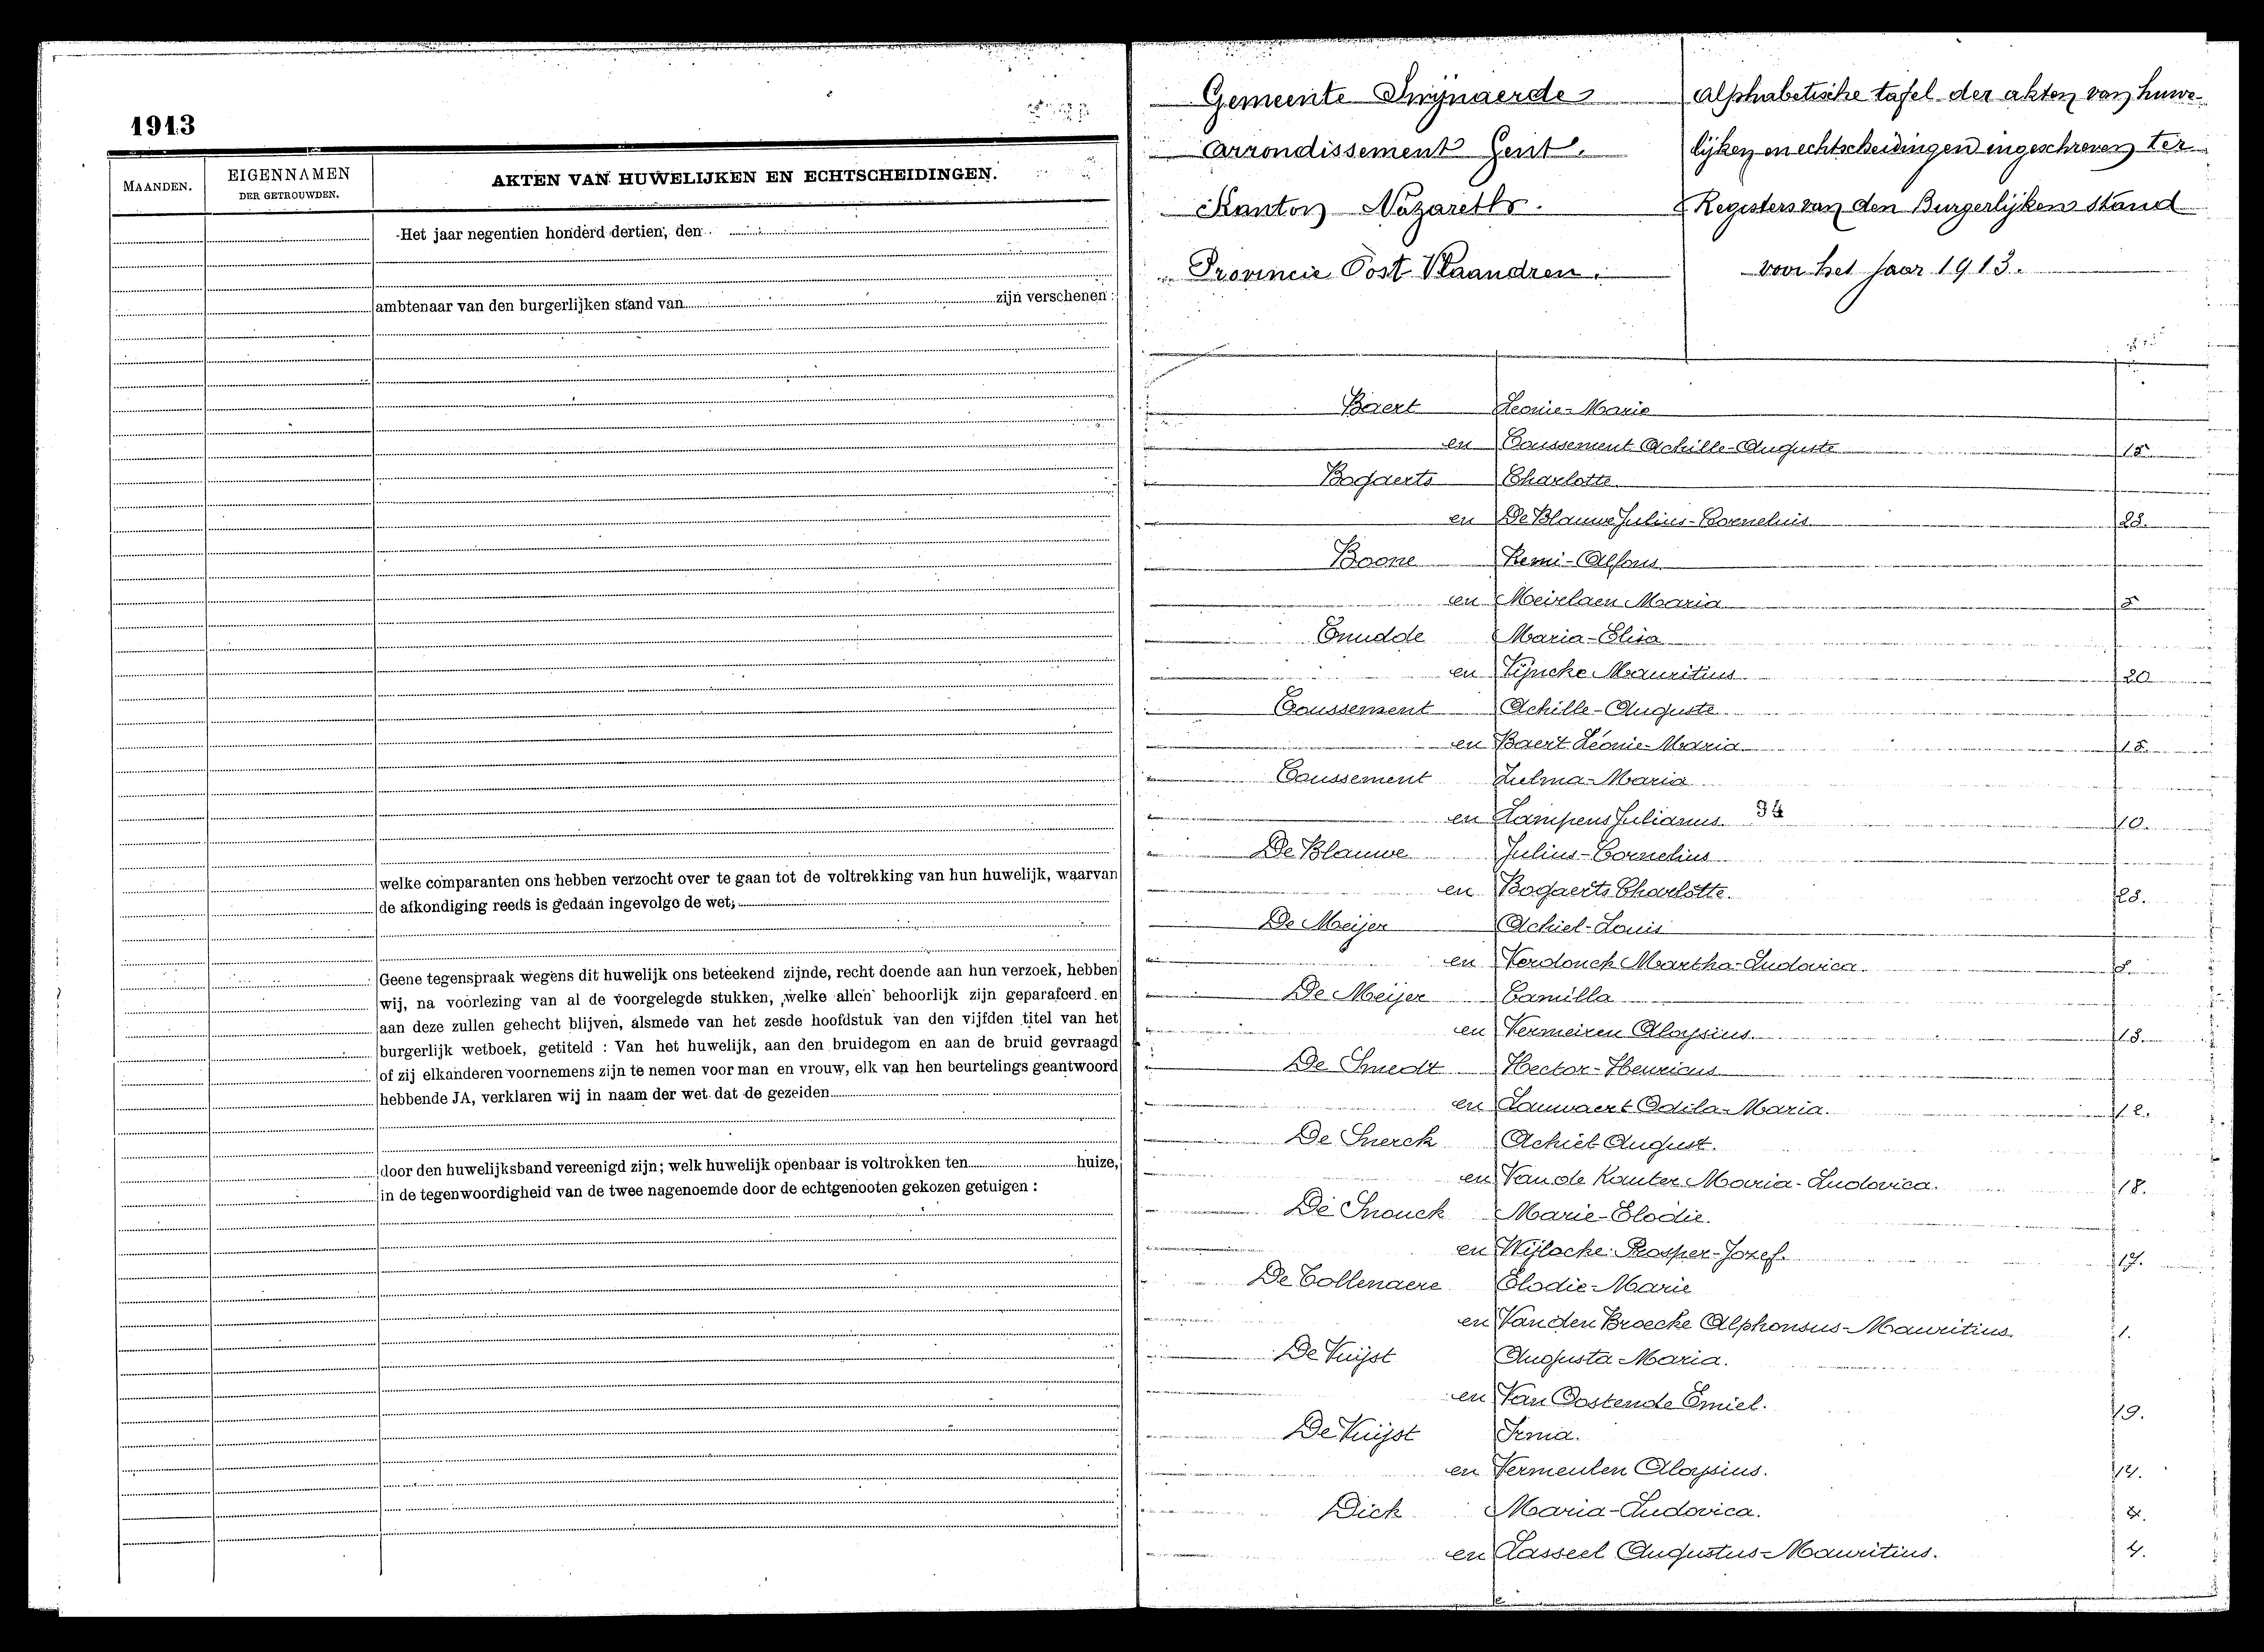 1913
MAANDEN.
EIGENNAMEN
DER GETROUWDEN.
AKTEN VAN HUWELIJKEN EN ECHTSCHEIDINGEN.
Het jaar negentien honderd dertien, den
ambtenaar van den burgerlijken stand van zijn verschenen :
welke comparanten ons hebben verzocht over te gaan tot de voltrekking van hun huwelijk, waarvan
de afkondiging reeds is gedaan ingevolge de wet;
Geene tegenspraak wegens dit huwelijk ons beteekend zijnde, recht doende aan hun verzoek, hebben
wij, na voorlezing van al de voorgelegde stukken, welke allen behoorlijk zijn geparafeerd en
aan deze zullen gehecht blijven, alsmede van het zesde hoofdstuk van den vijfden titel van het
burgerlijk wetboek, getiteld : Van het huwelijk, aan den bruidegom en aan de bruid gevraagd
of zij elkanderen voornemens zijn te nemen voor man en vrouw, elk van hen beurtelings geantwoord
hebbende JA, verklaren wij in naam der wet dat de gezeiden
door den huwelijksband vereenigd zijn; welk huwelijk openbaar is voltrokken ten huize,
in de tegenwoordigheid van de twee nagenoemde door de echtgenooten gekozen getuigen :
Gemeente Swijnaerde
Arrondissement Gent.
Kanton Nazareth.
Provincie Oost Vlaandren.
Alphabetische tafel der akten van huwe-
lijken en echtscheidingen ingeschreven ter
Registers van den Burgerlijken stand
voor het jaar 1913.
Baert Leonie-Marie
en Coussement Achille-Auguste 15.
Bogaerts Charlotte
en De Blauwe Julius-Cornelius 23.
Boone Remi-Alfons
en Meirlaen Maria 5
Cnudde Maria-Elisa
en Tijncke Mauritius 20
Coussement Achille-Auguste
en Baert Léonie-Maria 15
Coussement Zulma-Maria
en Lampens Julianus 34 10.
De Blauwe Julius-Cornelius
en Bogaerts Charlotte. 23.
De Meijer Achiel-Louis
en Verdonck Martha-Ludovica
De Meijer Camilla
en Vermeiren Aloysius 13.
De Smedt Hector-Henricus
en Lauwaert Odila-Maria. 12.
De Snerck Achiel August.
en Van de Kauter Maria-Ludovica. 18.
De Snouck Marie-Elodie.
en Wijlocke Prosper-Jozef. 17.
De Collenaere Elodie-Marie
en Vanden Broecke Alphonsus-Mauritius 1.
De Vuijst Augusta Maria.
en Van Oostende Emiel. 19.
De Vuijst Irma.
en Vermeulen Aloysius. 14.
Dick Maria-Ludovica. 4.
en Lasseel Augustus-Mauritius. 4.